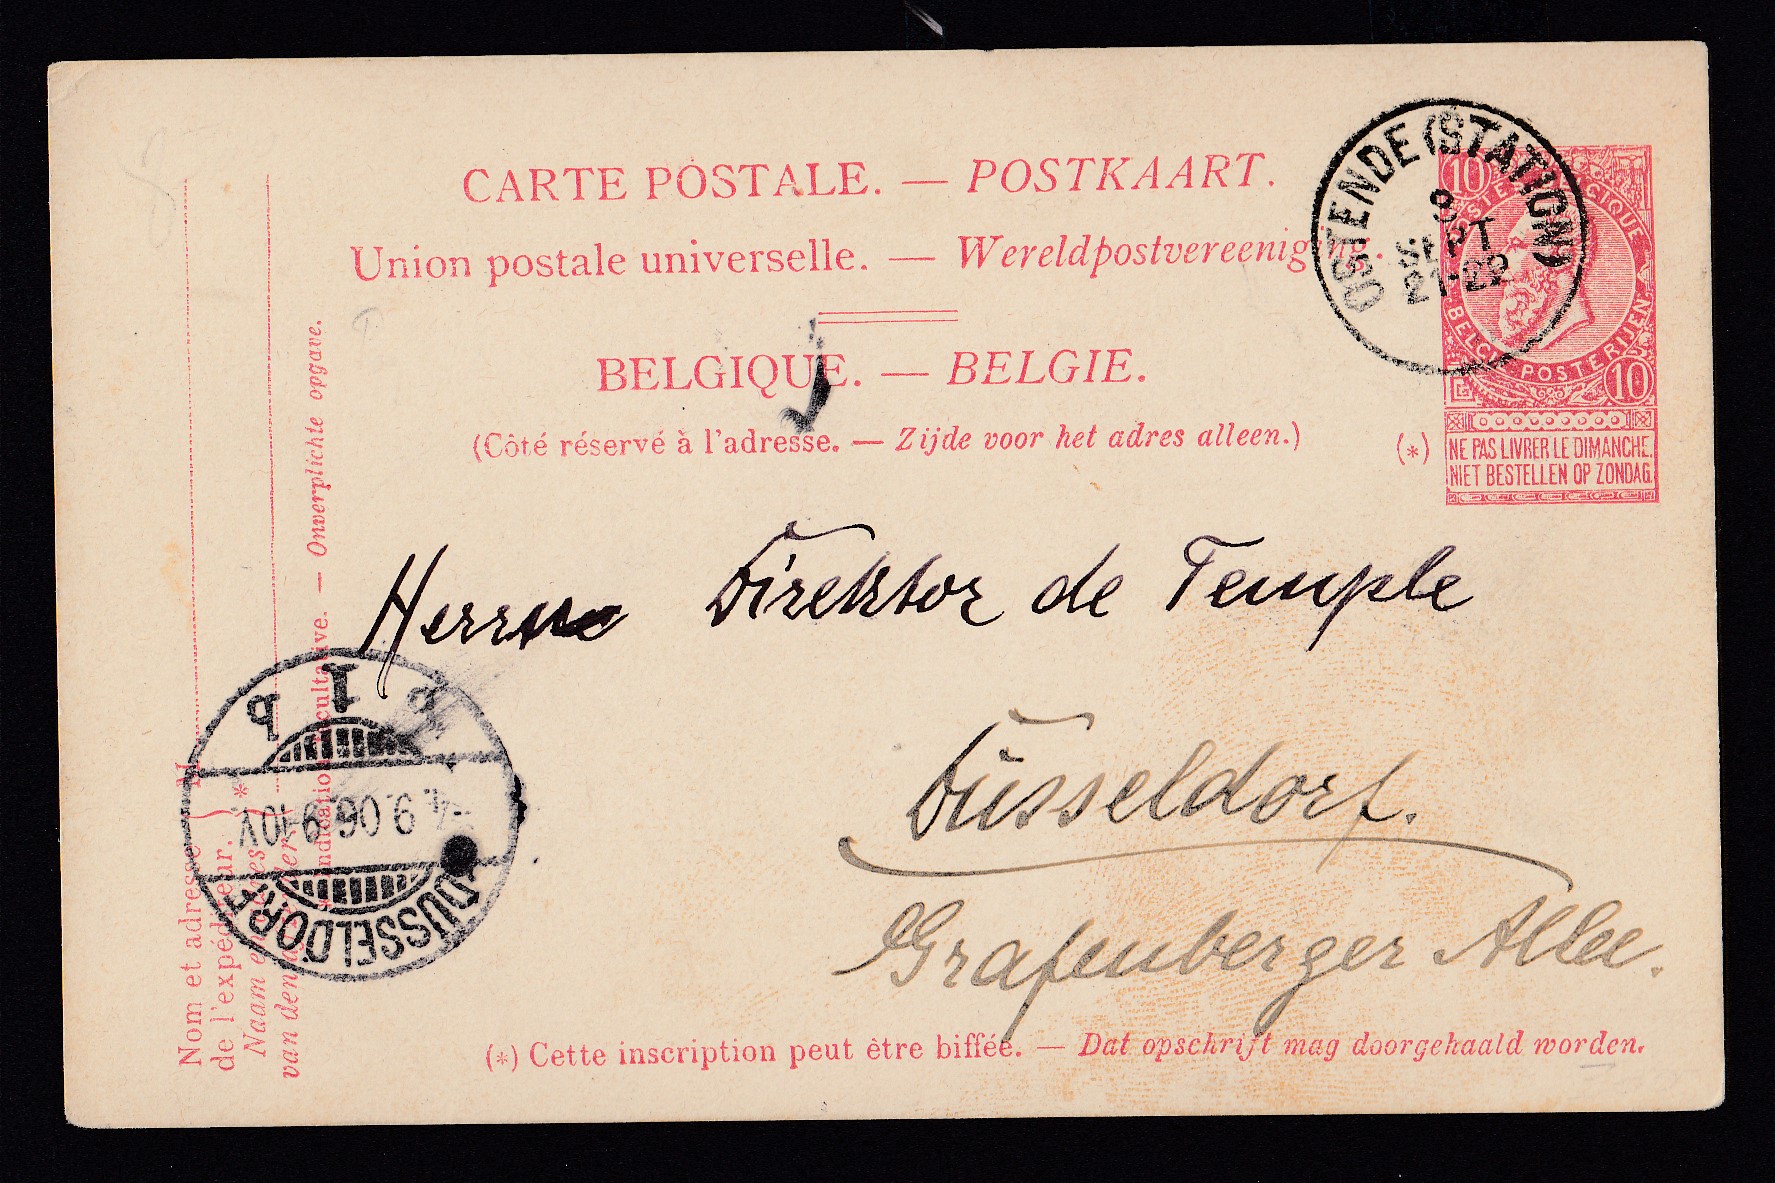 CARTE POSTALE. — POSTKAART.
Union postale universelle. — Wereldpostvereeniging.
BELGIQUE. — BELGIE.
(Côté réservé à l'adresse. — Zijde voor het adres alleen.)
OSTENDE (STATION)
SEPT
21-22
10
POSTES BELGIQUE
BELGIE POSTERIJEN
10
(*)
NE PAS LIVRER LE DIMANCHE.
NIET BESTELLEN OP ZONDAG.
Herrn Direktor de Temple
Düsseldorf.
Grafenberger Allee.
DÜSSELDORF
4.9.06. 9-10V.
1 b
Nom et adresse
de l'expéditeur.
Naam en adres
van den afzender
M
*
Indication facultative. — Onverplichte opgave.
(*) Cette inscription peut être biffée. — Dat opschrift mag doorgehaald worden.